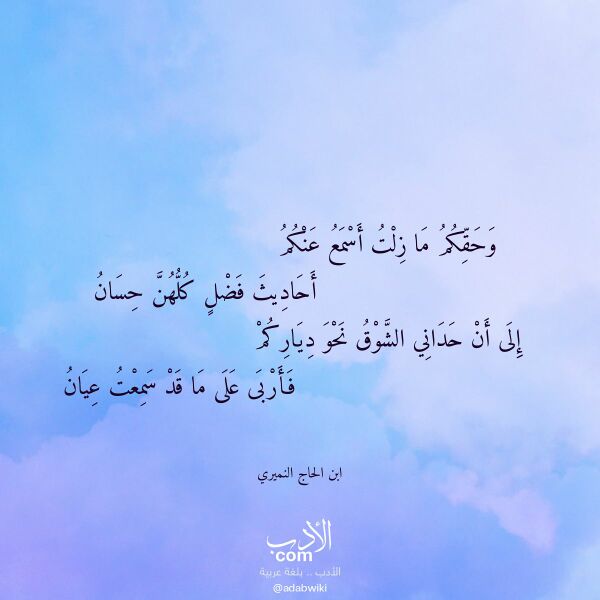 وَحَقِّكُمُ مَا زِلْتُ أَسْمَعُ عَنْكُمُ
أَحَادِيثَ فَضْلٍ كُلُّهُنَّ حِسَانُ
إِلَى أَنْ حَدَانِي الشَّوْقُ نَحْوَ دِيَارِكُمْ
فَأَرْبَى عَلَى مَا قَدْ سَمِعْتُ عِيَانُ
ابن الحاج النميري
الأدب
com
الأدب .. بلغة عربية
@adabwiki